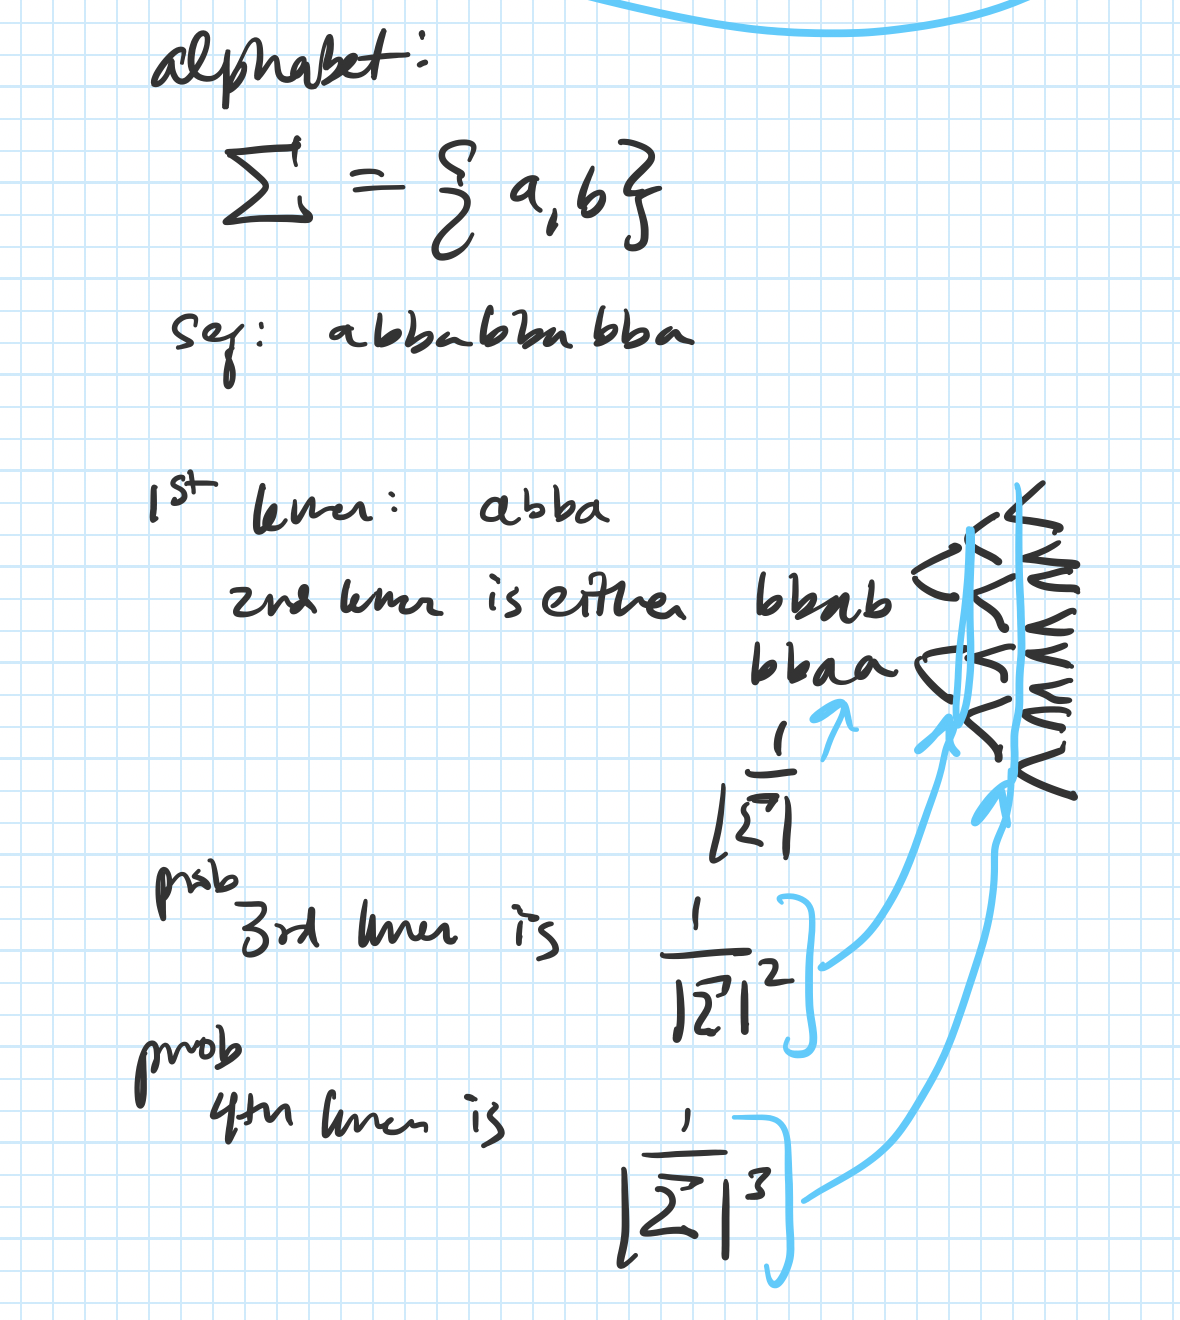 alphabet:
Σ = { a, b }
seq: abbabbabba
1st kmer: abba
2nd kmer is either bbab
bbaa
1
|Σ|
prob
3rd kmer is 1
|Σ|2
prob
4th kmer is 1
|Σ|3